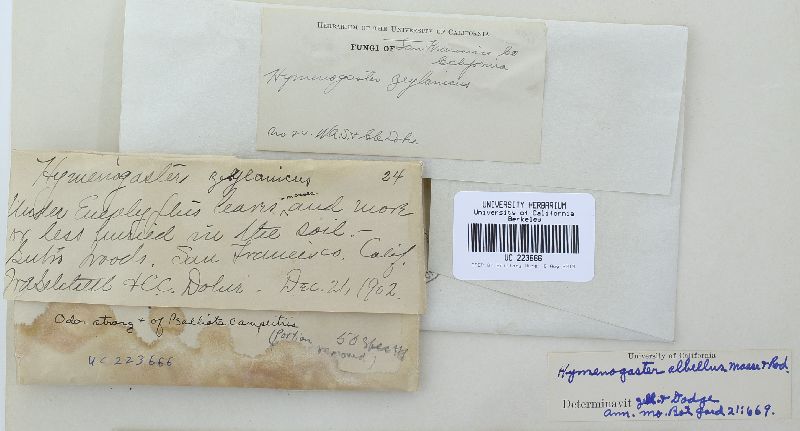 HERBARIUM OF THE UNIVERSITY OF CALIFORNIA
FUNGI OF San Francisco Co
California
Hymenogaster zeylanicus
No 24.
Hymenogaster zeylanicus 24
Under Eucalyptus leaves, and more
or less buried in the soil. -
Sutro woods, San Francisco, Calif.
Dec. 21, 1902.
Odor strong + of Psalliota campestris
(Portion removed)
UC 223666
UNIVERSITY HERBARIUM
University of California
Berkeley
UC 223666
University of California
Hymenogaster albellus Masse & Rod.
Determinavit Zell. & Dodge
Ann. Mo. Bot. Gard 21:669.